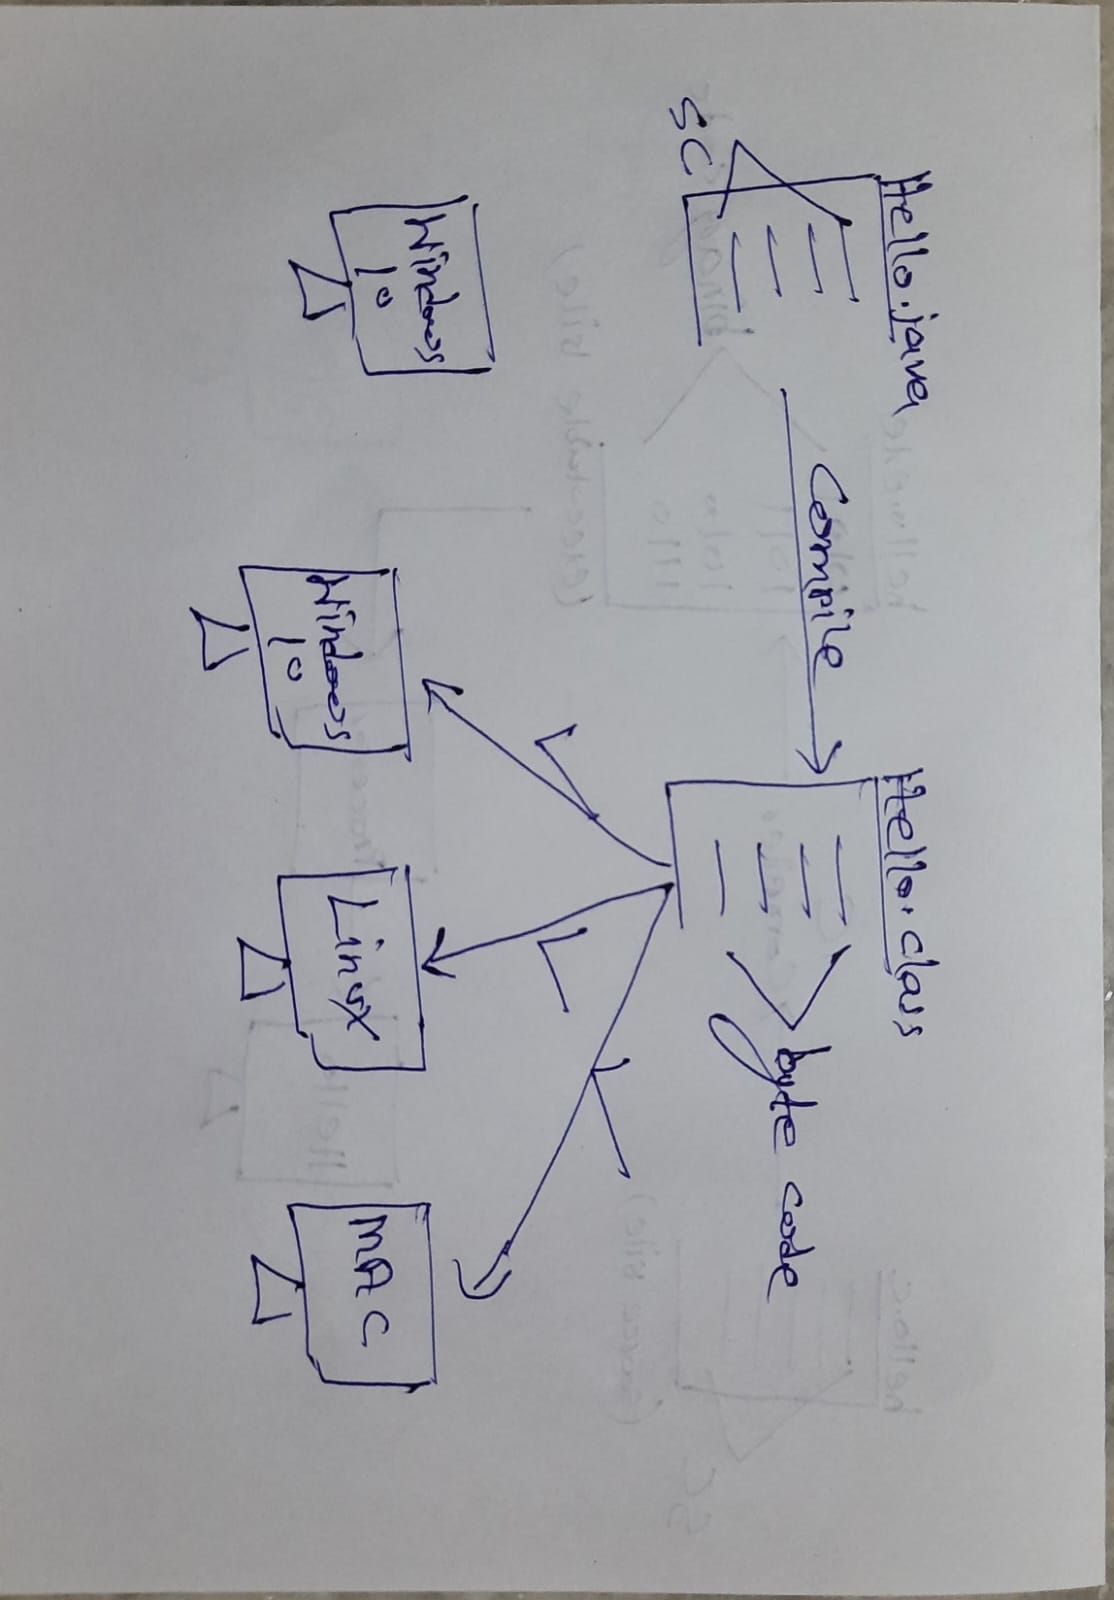 Hello.java
SC
Compile
Hello.class
byte code
Windows
10
Windows
10
Linux
MAC